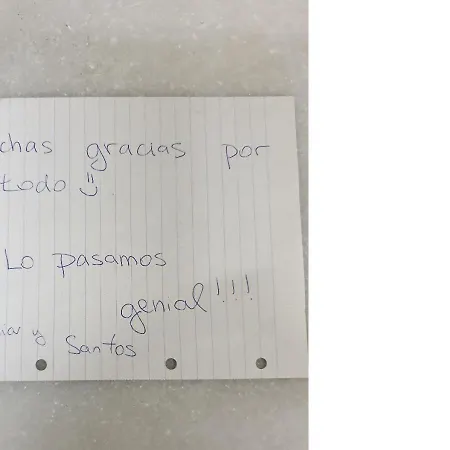 chas gracias por
todo
Lo pasamos
genial!!!
y Santos